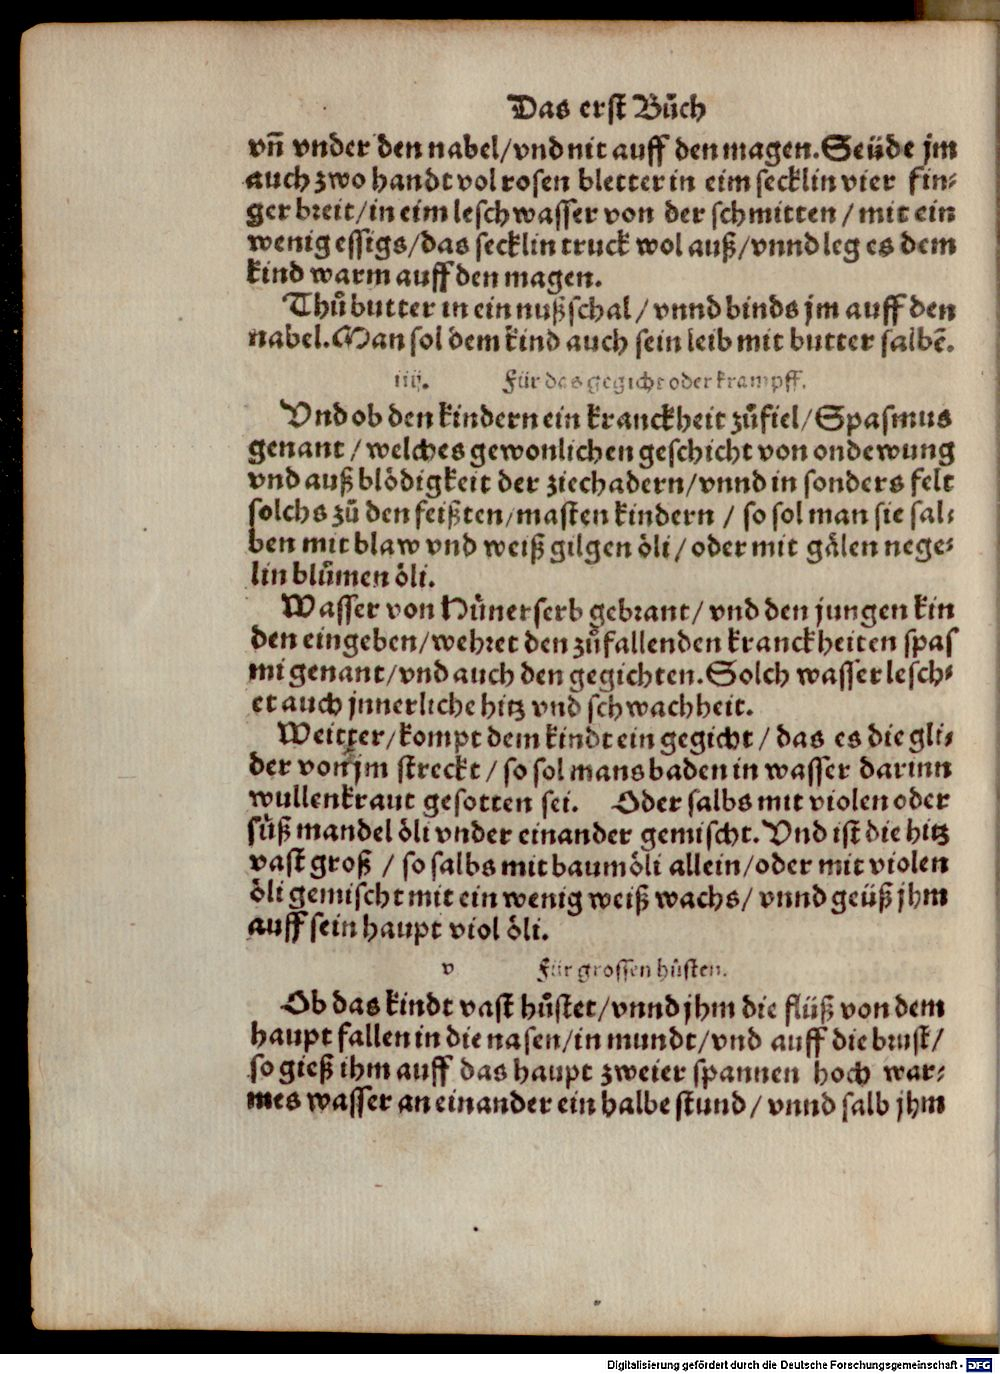 Das erst Bůch
vñ vnder den nabel/vnd nit auff den magen. Seüde jm
auch zwo handt vol rosen bletter in eim secklin vier fin⸗
ger breit/in eim leschwasser von der schmitten/mit ein
wenig essigs/das secklin truck wol auß/vnnd leg es dem
kind warm auff den magen.
Thů butter in ein nußschal/vnnd binds jm auff den
nabel. Man sol dem kind auch sein leib mit butter salbẽ.
iiij. Für das gegicht oder krampff.
Vnd ob den kindern ein kranckheit zůfiel/Spasmus
genant/welches gewonlichen geschicht von ondewung
vnd auß blödigkeit der ziechadern/vnnd in sonders felt
solchs zů den feißten, masten kindern/so sol man sie sal⸗
ben mit blaw vnd weiß gilgen öli/oder mit gälen nege⸗
lin blůmen öli.
Wasser von Hünerserb gebrant/vnd den jungen kin
den eingeben/wehret den zůfallenden kranckheiten spas
mi genant/vnd auch den gegichten. Solch wasser lesch⸗
et auch jnnerliche hitz vnd schwachheit.
Weitter/kompt dem kindt ein gegicht/das es die gli⸗
der von jm streckt/so sol mans baden in wasser darinn
wullenkraut gesotten sei. Oder salbs mit violen oder
süß mandel öli vnder einander gemischt. Vnd ist die hitz
vast groß/so salbs mit baumöli allein/oder mit violen
öli gemischt mit ein wenig weiß wachs/vnnd geüß jhm
auff sein haupt viol öli.
v Für grossen hůsten.
Ob das kindt vast hůstet/vnnd jhm die flüß von dem
haupt fallen in die nasen/in mundt/vnd auff die brust/
so gieß ihm auff das haupt zweier spannen hoch war⸗
mes wasser an einander ein halbe stund/vnnd salb jhm
Digitalisierung gefördert durch die Deutsche Forschungsgemeinschaft - DFG